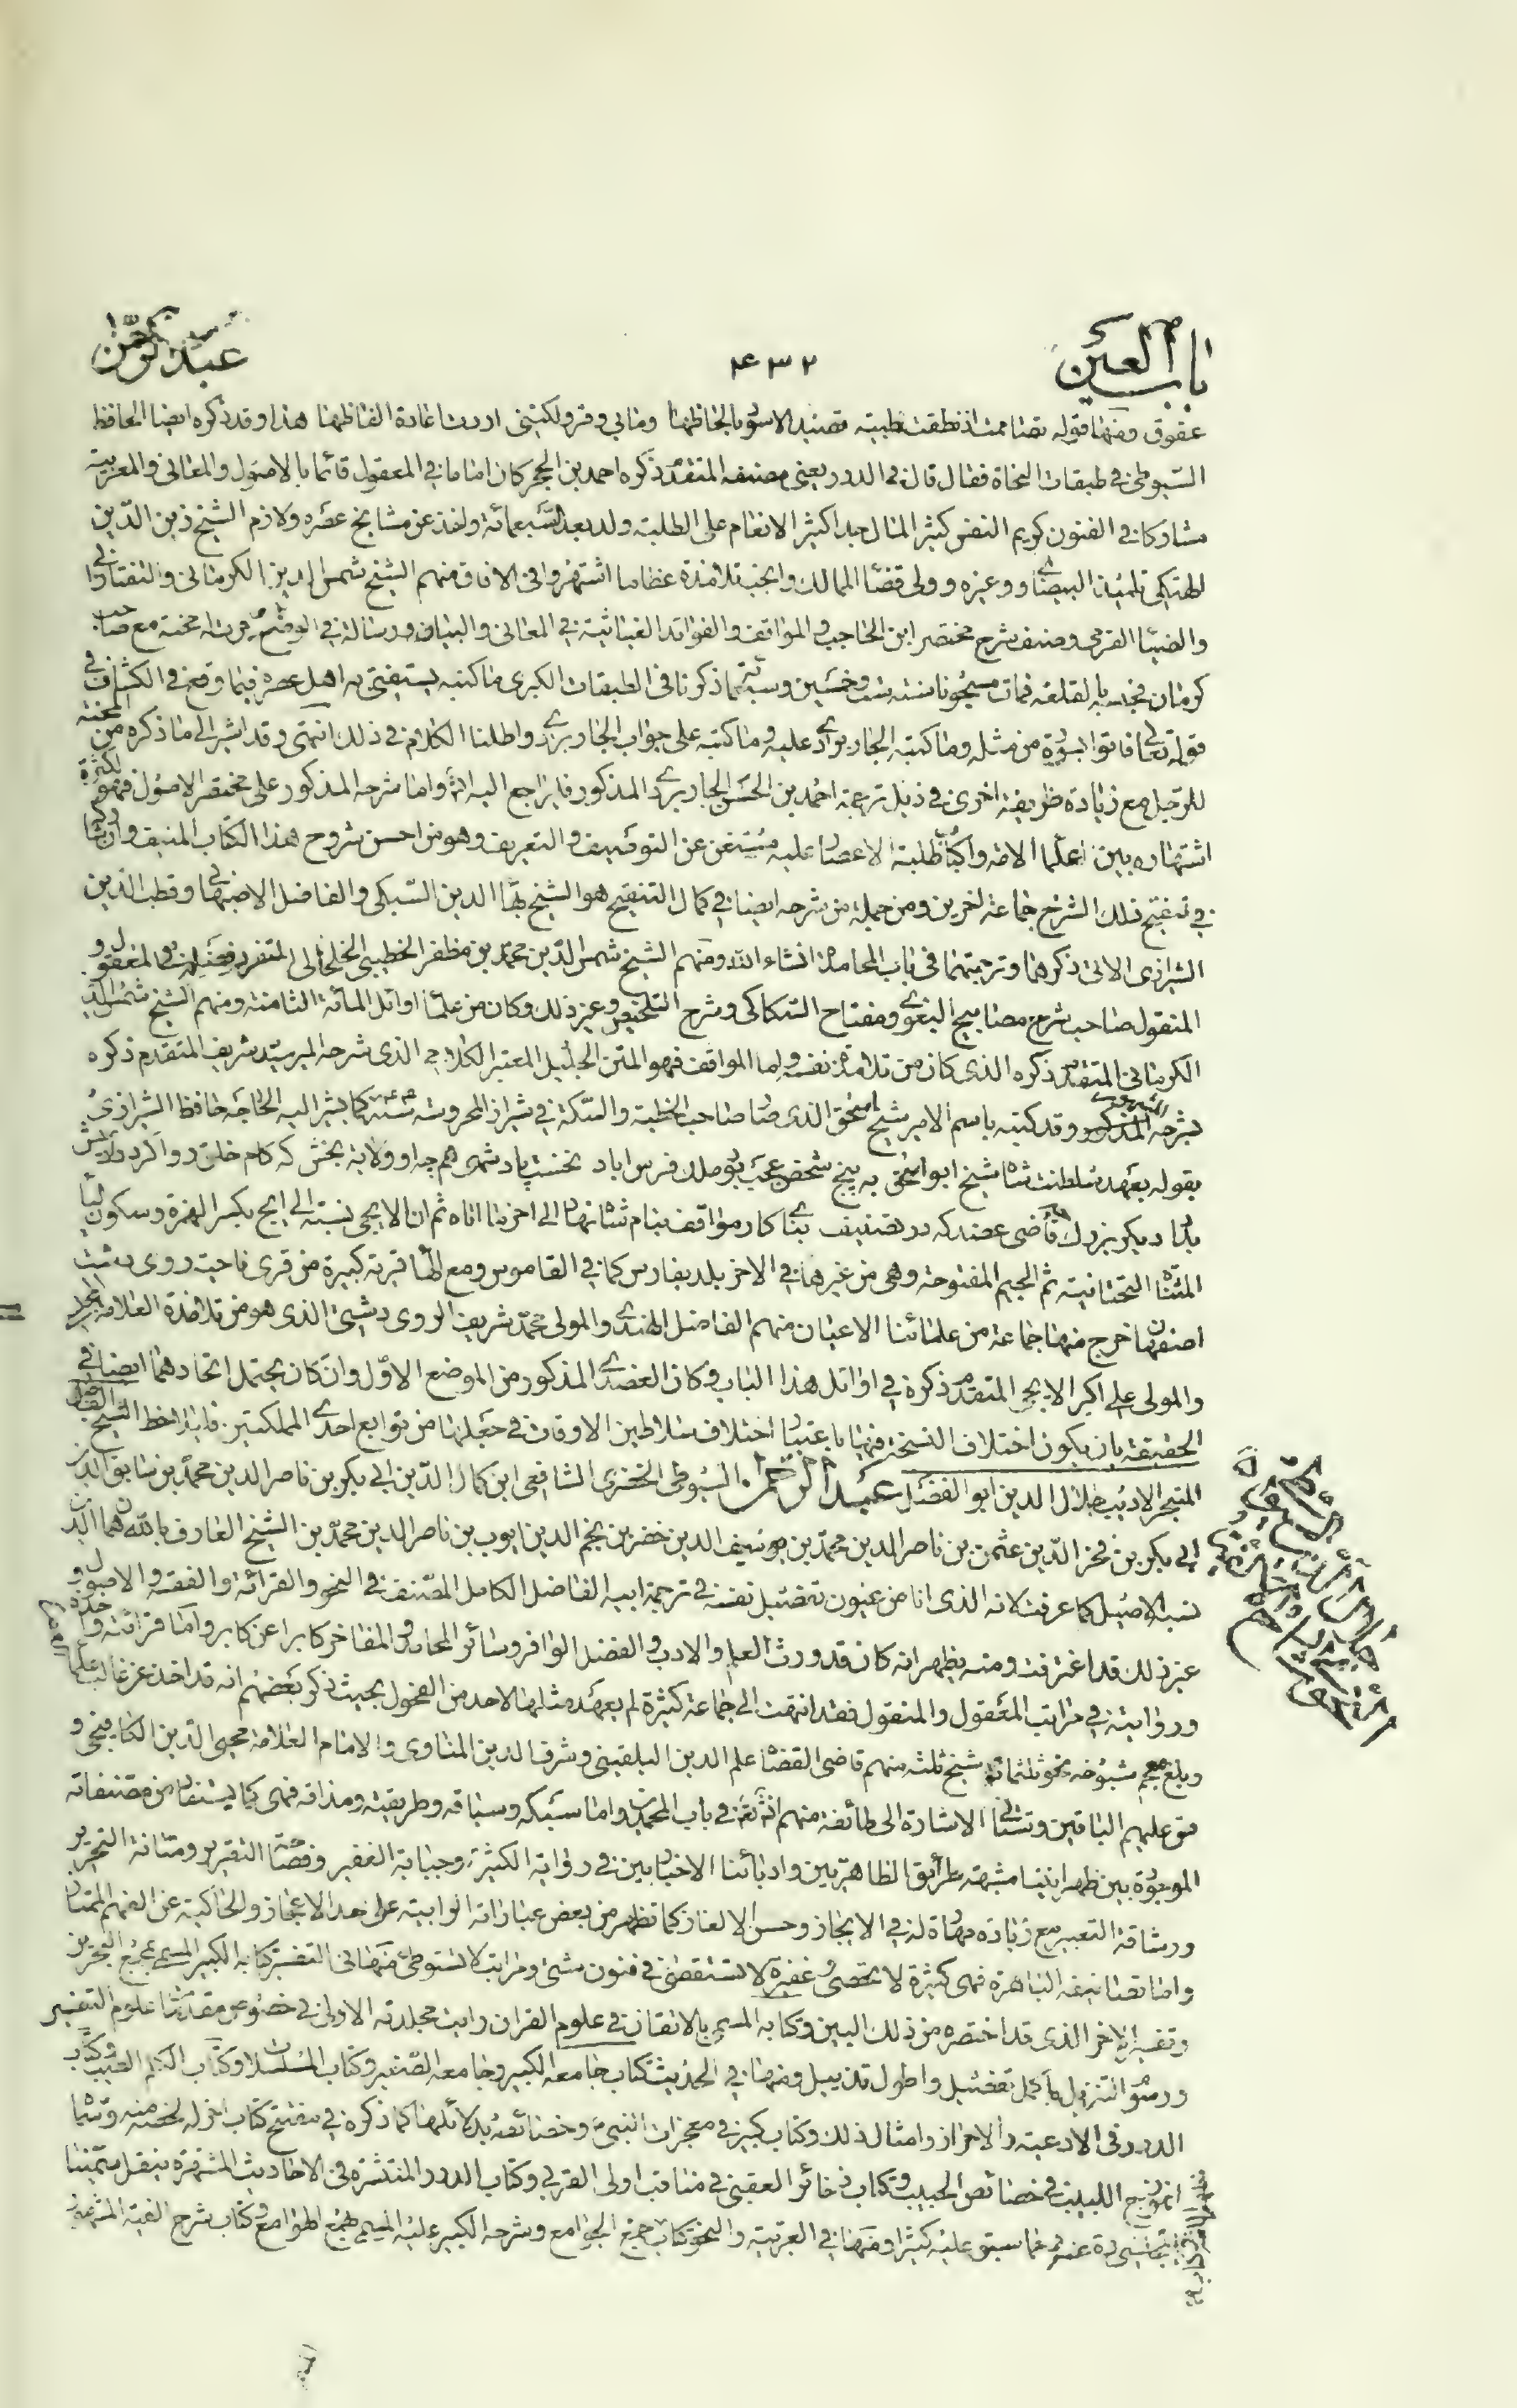 باب العين
٤٣٢
عبد الرحمن
عقوق ومنها قوله
هذا وقد ذكره ايضا الحافظ
السيوطى فى طبقات النحاة فقال قال فى الدرر يعنى مصنفه المتقدم ذكره احمد بن الحجر كان اماما فى المعقول قائما بالاصول والمعانى والعربية
مشاركا فى الفنون كريم النفس كثير المال جدا كثير الانعام على الطلبة ولد بعد السبعمائة واخذ عن مشايخ عصره ولازم الشيخ زين الدين
الهنكى تلميذ البيضاوى وغيره وولى قضاء الممالك وانجب تلامذة عظاما اشتهروا فى الافاق منهم الشيخ شمس الدين الكرمانى والتفتازانى
والضياء القرمى وصنف شرح مختصر ابن الحاجب والمواقف والفوائد الغياثية فى المعانى والبيان ورسالة فى الوضع جرت له محنة مع صاحب
كرمان فحبسه بالقلعة فمات مسجونا سنة ست وخمسين وسبعمائة ذكرنا فى الطبقات الكبرى ما كتبه يستفتى به اهل عصره فيما وقع فى الكشاف فى
قوله تعالى فاتوا بسورة من مثله وما كتبه الجاربردى عليه وما كتبه على جواب الجاربردى واطلنا الكلام فى ذلك انتهى وقد اشير الى ما ذكره من المحنة
للرجل مع زيادة ظريفة اخرى فى ذيل ترجمة احمد بن الحسن الجاربردى المذكور فليراجع اليه انشاء واما شرحه المذكور على مختصر الاصول فهو لكثرة
اشتهاره بين علماء الامة واكباب طلبة الاعصار عليه مستغن عن التوصيف والتعريف وهو من احسن شروح هذا الكتاب المنيف وان شاركه
فى تنقيح تلك الشرح جماعة اخرين ومن جملة من شرحه ايضا فى كمال التنقيح هو الشيخ بهاء الدين السبكى والفاضل الاصبهانى وقطب الدين
الشيرازى الاتى ذكرهما وترجمتهما فى باب المحامدة انشاء الله ومنهم الشيخ شمس الدين محمد بن مظفر الخطيبى الخلخالى المتفرد فى المعقول و
المنقول صاحب شرح مصابيح البغوى ومفتاح السكاكى وشرح التلخيص وغير ذلك وكان من علماء اوائل المائة الثامنة ومنهم الشيخ شمس الدين
الكرمانى المتقدم ذكره الذى كان من تلامذة نفسه واما المواقف فهو المتن الجليل المعتبر الكلامى الذى شرحه المير سيد شريف المتقدم ذكره
بشرحه المذكور وقد كتبه باسم الامير شيخ ابو اسحق الذى صار صاحب الخطبة والسكة فى شيراز المحروسة كما يشير اليه الخاجه حافظ الشيرازى
بقوله بعهد سلطنت شاه شيخ ابو اسحق به پنج شخص عجب بود ملك فارس اباد نخست پادشهى همچو او ولايت بخش كه كام خلق روا كرد
دگر بزرگ قاضى عضد كه در تصنيف بناى كار مواقف بنام شاه نهاد الى اخر ما اتاه ثم ان الايجى نسبة الى ايج بكسر الهمزة وسكون الياء
المثناة التحتانية ثم الجيم المفتوحة وهى من غيرها فى الاخر بلد بفارس كما فى القاموس ومع الهاء قرية كبيرة من قرى ناحية روى دشت
اصفهان خرج منها جماعة من علمائنا الاعيان منهم الفاضل الهندى والمولى محمد شريف الروى دشتى الذى هو من تلامذة العلامة
والمولى على اكبر الايجى المتقدم ذكره فى اوائل هذا الباب وكان العضدى المذكور من الموضع الاول وان كان يحتمل اتحادهما ايضا فى
الحقيقة بان يكون اختلاف النسخة فيها باعتبار اختلاف سلاطين الاوقات فى جعلها من توابع احدى المملكتين فليلاحظ الشيخ الفاضل
المتبحر الاديب جلال الدين ابو الفضل عبد الرحمن السيوطى الخضرى الشافعى ابن كمال الدين ابى بكر بن ناصر الدين محمد بن سابق الدين
ابى بكر بن فخر الدين عثمن بن ناصر الدين محمد بن سيف الدين خضر بن نجم الدين ايوب بن ناصر الدين محمد بن الشيخ العارف بالله همام الدين
نسبه الاصيل كما عرفت لانه الذى فى ترجمة ابيه الفاضل الكامل المصنف فى النحو والقرائة والفقه والاصول و
غير ذلك قد اعترفت ومنه يظهر انه كان قد ورث العلم والادب والفضل الوافر وسائر المحامد والمفاخر كابرا عن كابر واما قرائته واخذه
وروايته فى مراتب المعقول والمنقول فقد انتهت الى جماعة كثيرة لم يعهد مثلها لاحد من الفحول بحيث ذكر بعضهم انه قد اخذ عن غالب علماء
وبلغ معجم شيوخه نحو ثلثمائة شيخ ثلثه منهم قاضى القضاة علم الدين البلقينى وشرف الدين المناوى والامام العلامة محيى الدين الكافيجى و
قس عليهم الباقين وستاتى الاشارة الى طائفة منهم انشاء الله فى باب المحمدين واما سبكه وسياقه وطريقته ومذاقه فهى كما يستفاد من مصنفاته
الموجودة بين ظهرانينا مشبهة بطرائق الظاهريين وادبائنا الاخباريين فى رواية الكثير وجباية الغفير وفصاحة التقرير ومتانة التحرير
ورشاقة التعبير مع زيادة مهارة له فى الايجاز وحسن الالغاز كما تظهر من بعض عباراته الوابية على حد الاعجاز والحاكية عن الفهم الممتاز
واما تصانيفه الباهرة فهى كثيرة لا تحصى وغفيرة لا تستقصى فى فنون شتى ومراتب لا تستوطى فمنها فى التفسير كتابه الكبير المسمى بمجمع البحرين
وتفسيره الاخر الذى قد اختصره من ذلك البين وكتابه المسمى بالاتقان فى علوم القران رايت مجلدته الاولى فى خصوص مقدمات علوم التفسير
ورسوم التنزيل باجمل تفصيل واطول تذييل ومنها فى الحديث كتاب جامعه الكبير وجامعه الصغير وكتاب المسلسلات وكتاب الكلم الطيب وكتاب
الدرر فى الادعية والاحراز وامثال ذلك وكتاب كبير فى معجزات النبى وخصائصه بدلائلها كما ذكره فى مفتتح كتاب اخر له لخصه منه وسماه
انموذج اللبيب فى خصائص الحبيب وكتاب ذخائر العقبى فى مناقب اولى القربى وكتاب الدرر المنتثرة فى الاحاديث المشتهرة ينقل
عنه فيما سبق عليه كثيرا ومنها فى العربية والنحو كتاب جمع الجوامع وشرحه الكبير عليه المسمى بهمع الهوامع وكتاب شرح الفية